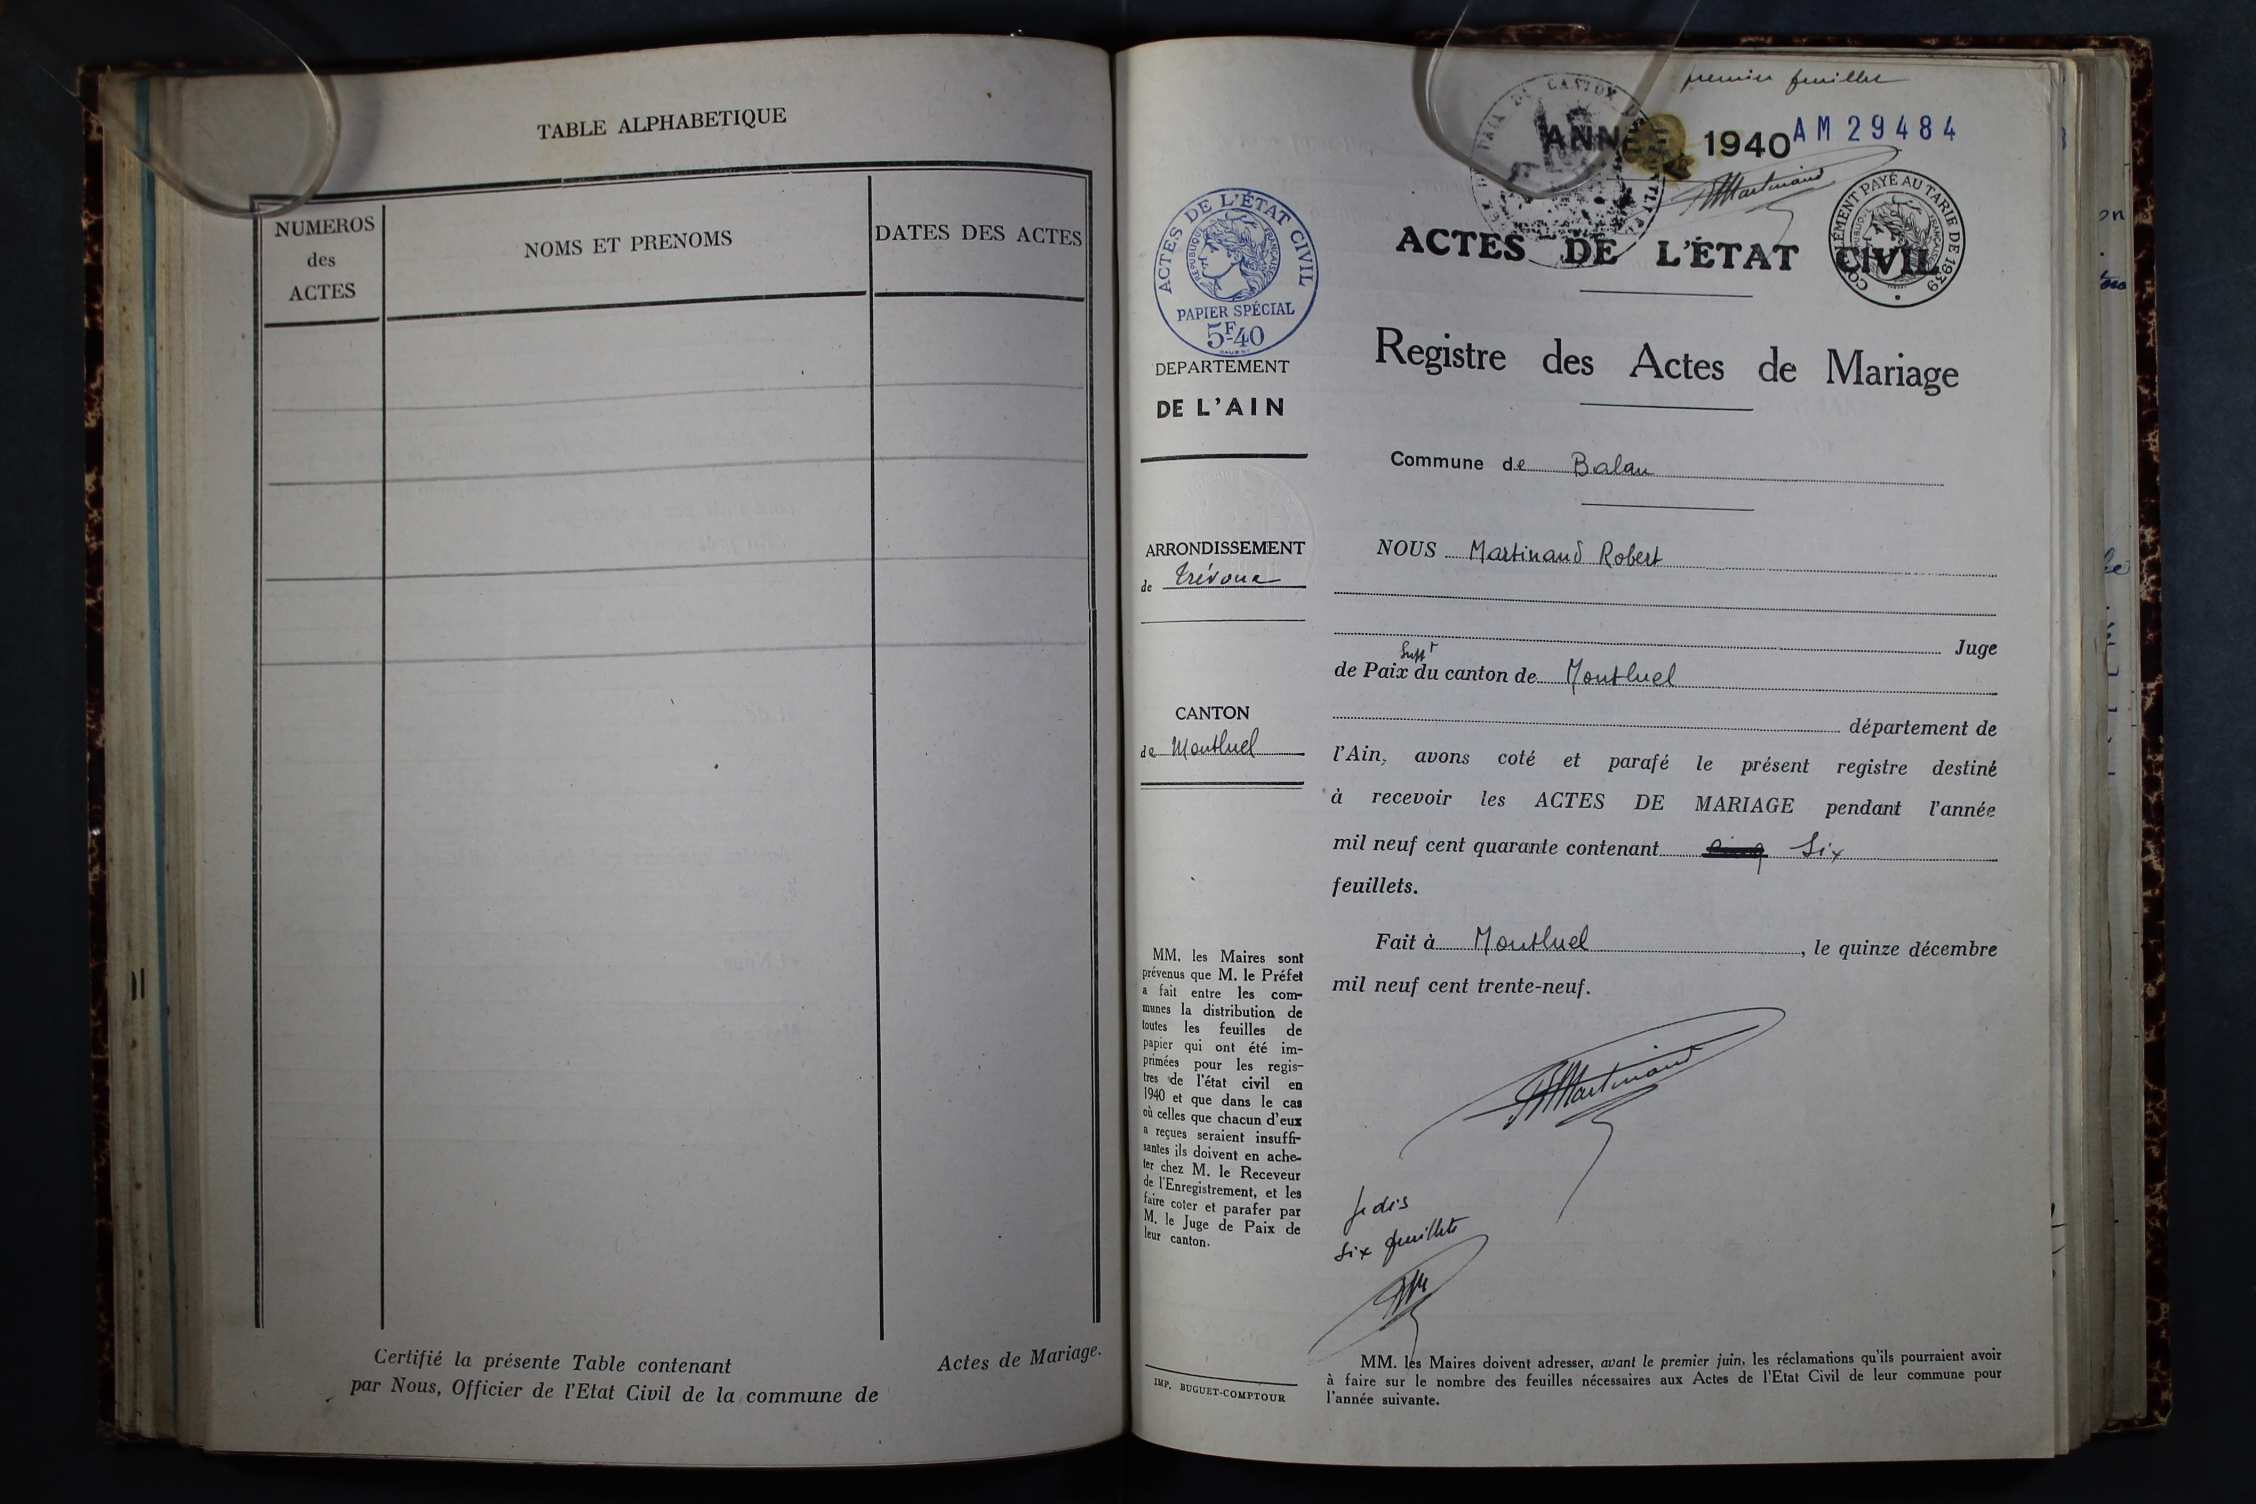 TABLE ALPHABETIQUE
NUMEROS
des
ACTES
NOMS ET PRENOMS
DATES DES ACTES
Certifié la présente Table contenant
Actes de Mariage.
par Nous, Officier de l'Etat Civil de la commune de
premier feuillet
ANNÉE 1940
AM 29484
Martinand
ACTES DE L'ÉTAT CIVIL
COMPLÉMENT PAYÉ AU TARIF DE 1939
RÉPUBLIQUE FRANÇAISE
ACTES DE L'ÉTAT CIVIL
RÉPUBLIQUE FRANÇAISE
PAPIER SPÉCIAL
5F40
DEPARTEMENT
DE L'AIN
ARRONDISSEMENT
de Trévoux
CANTON
de Montluel
MM. les Maires sont
prévenus que M. le Préfet
a fait entre les com-
munes la distribution de
toutes les feuilles de
papier qui ont été im-
primées pour les regis-
tres de l'état civil en
1940 et que dans le cas
où celles que chacun d'eux
a reçues seraient insuffi-
santes ils doivent en ache-
ter chez M. le Receveur
de l'Enregistrement, et les
faire coter et parafer par
M. le Juge de Paix de
leur canton.
IMP. BUGUET-COMPTOUR
Registre des Actes de Mariage
Commune de Balan
NOUS Martinand Robert
Juge
Suppt
de Paix du canton de Montluel
département de
l'Ain, avons coté et parafé le présent registre destiné
à recevoir les ACTES DE MARIAGE pendant l'année
mil neuf cent quarante contenant cinq Six
feuillets.
Fait à Montluel, le quinze décembre
mil neuf cent trente-neuf.
Martinand
Je dis
six feuillets
MM. les Maires doivent adresser, avant le premier juin, les réclamations qu'ils pourraient avoir
à faire sur le nombre des feuilles nécessaires aux Actes de l'Etat Civil de leur commune pour
l'année suivante.